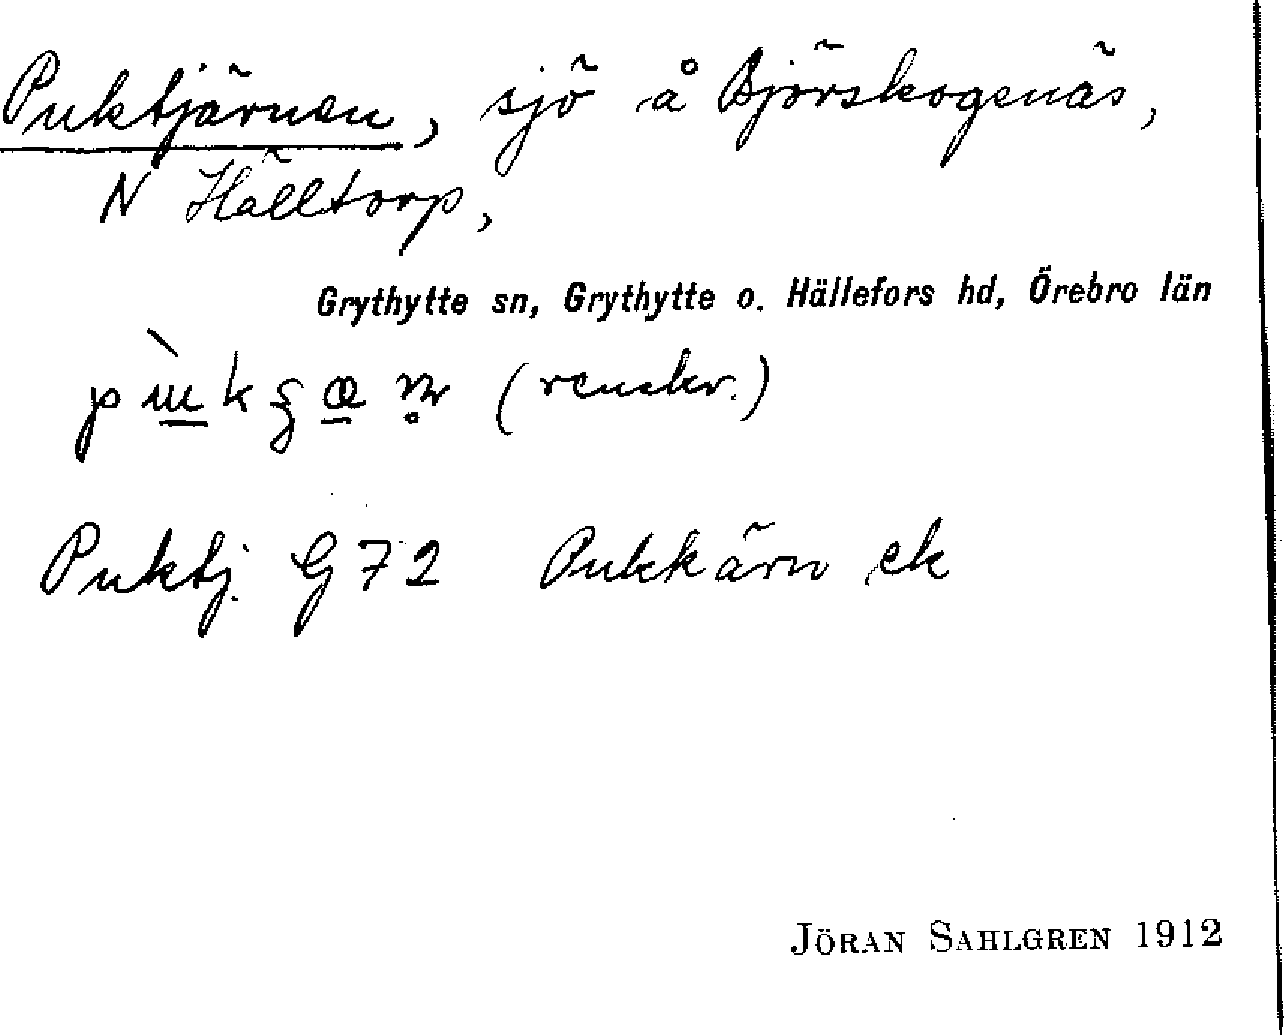 Puktjärnen, sjö å Björskogsnäs,
N Hälltorp,
Grythytte sn, Grythytte o. Hällefors hd, Örebro län
(renskr.)
Puktj. G 72 Pukkärn ek
JÖRAN SAHLGREN 1912